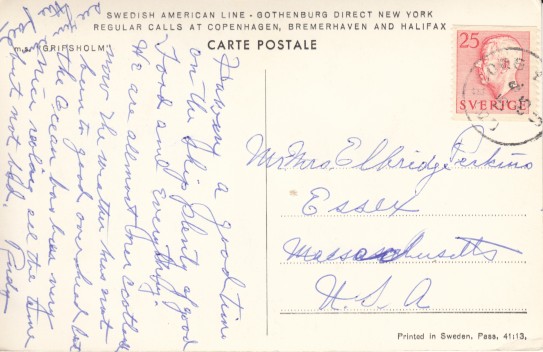 SWEDISH AMERICAN LINE - GOTHENBURG DIRECT NEW YORK
REGULAR CALLS AT COPENHAGEN, BREMERHAVEN AND HALIFAX
m.s. "GRIPSHOLM"
CARTE POSTALE
25
SVERIGE
Having a good time
on the Ship plenty of good
Food and everything.
We are allmost over
now the weather has not
been to good overhead but
the Ocean has been very
nice rolling all the time
but not bad.
Rudy
Mr Mrs. Elbridge Perkins
Essex
Massachusetts
U.S.A
Printed in Sweden, Pass. 41:13.